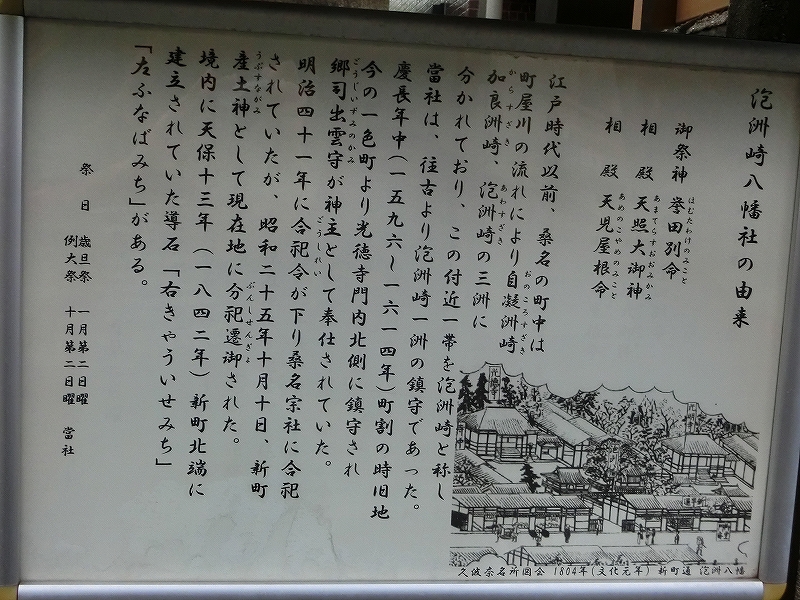 泡洲崎八幡社の由来
御祭神 誉田別命
はむたわけのみこと
相殿 天照大御神
あまてらすおおみかみ
相殿 天児屋根命
あめのこやめのみこと
江戸時代以前、桑名の町中は
町屋川の流れにより自凝洲崎
おのころすざき
加良洲崎、泡洲崎の三洲に
からすざき あわすざき
分かれており、この付近一帯を泡洲崎と称し
當社は、往古より泡洲崎一洲の鎮守であった。
慶長年中(一五九六〜一六一四年)町割の時旧地
今の一色町より光徳寺門内北側に鎮守され
郷司出雲守が神主として奉仕されていた。
ごうじいずみのかみ
明治四十一年に合祀令が下り桑名宗社に合祀
ごうしれい
されていたが、昭和二十五年十月十日、新町
産土神として現在地に分祀遷御された。
うぶすながみ ぶんしせんぎょ
境内に天保十三年(一八四二年)新町北端に
建立されていた導石「右きゃういせみち」
「左ふなばみち」がある。
祭日 歳旦祭 一月第二日曜
例大祭 十月第二日曜 當社
久波奈名所図会 1804年(文化元年) 新町通 泡洲八幡